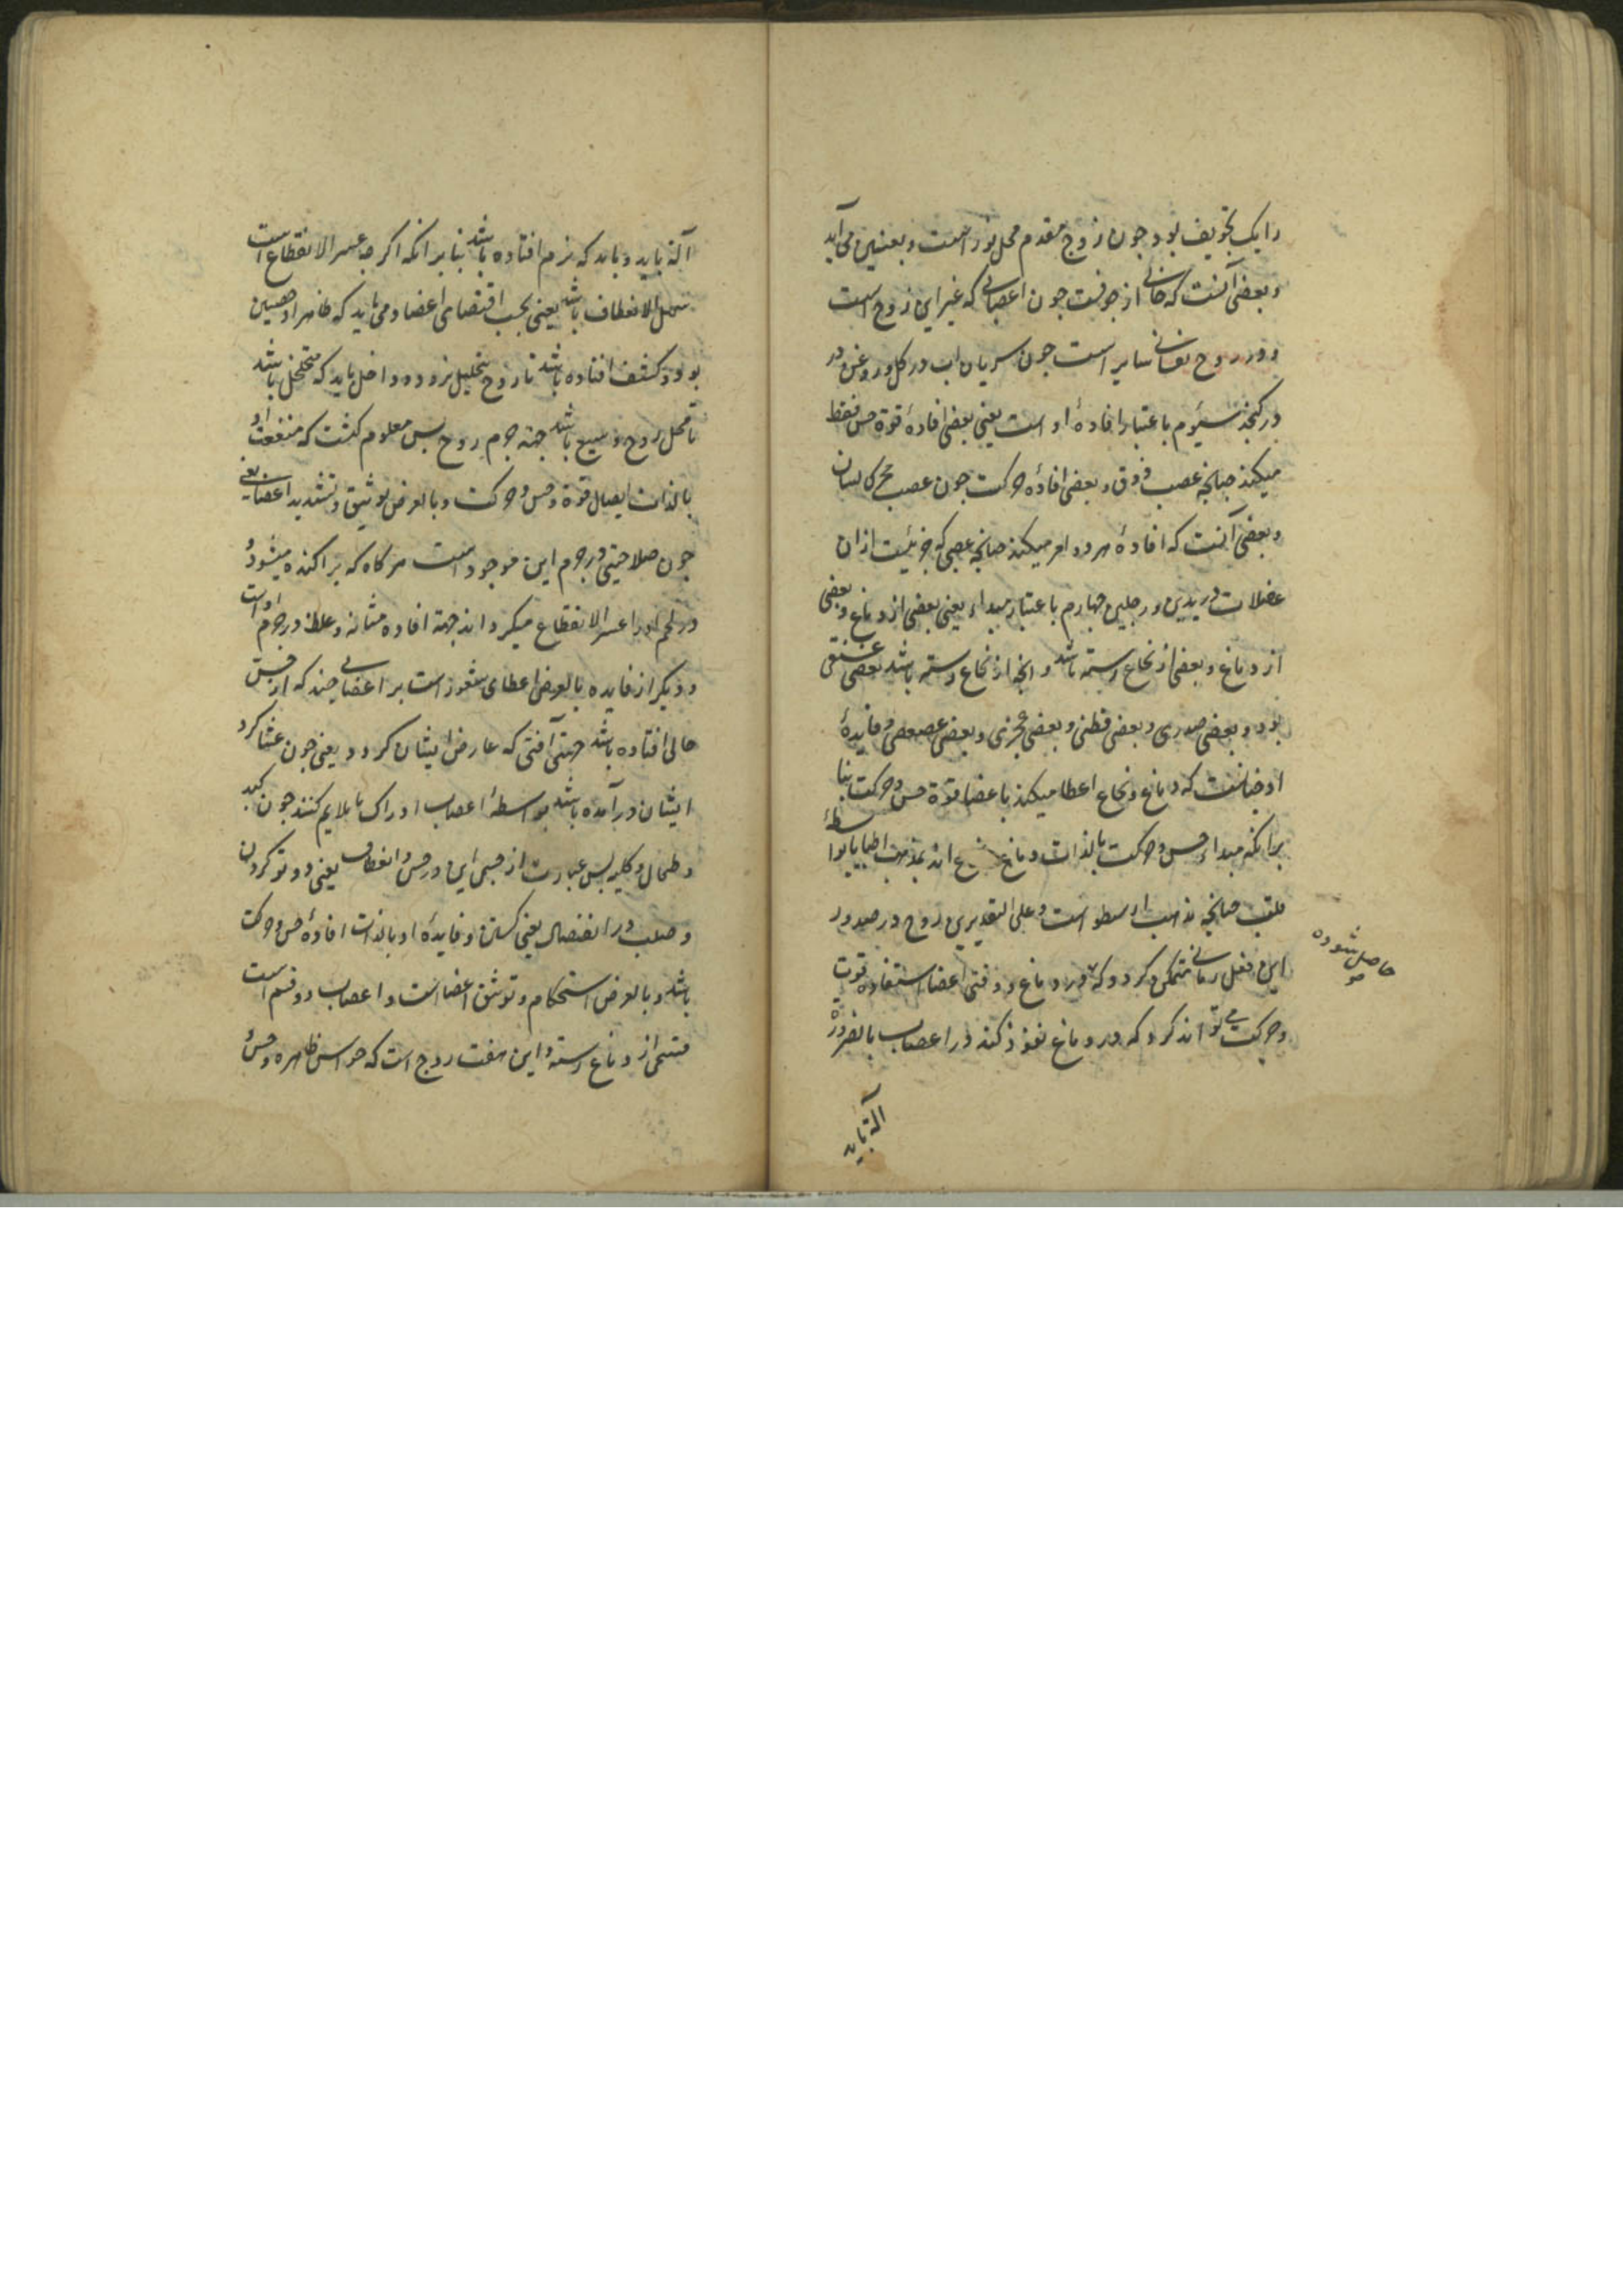 را یک تجویف بود چون زوج مقدم محل نور است و بعینین می آید
و بعضی آنست که خالی از جوفست چون اعصابی که غیر این زوج است
و در روح نفسانی سایر است چون سریان اب در کل و روغن در
در کنجد سیوم باعتبار افادهٔ او است یعنی بعضی افادهٔ قوة حس فقط
میکند چنانچه عصب ذوق و بعضی افادهٔ حرکت چون عصب محرکه لسان
و بعضی آنست که افادهٔ هر دو امر میکند چنانچه عصبی که جزئیست از ان
عضلات در یدین و رجلین چهارم باعتبار مبداء یعنی بعضی از دماغ و بعضی
از دماغ و بعضی از نخاع رسته باشد و انچه از نخاع رسته باشد بعضی عنقی
بود و بعضی صدری و بعضی قطنی و بعضی عجزی و بعضی عصعصی و فایدهٔ
او ضانست که دماغ و نخاع اعطا میکند باعضا قوة حس و حرکت بنا
برانکه مبداء حس و حرکت بالذات دماغ نخاع اند بمذهب اطبا یا بواسطهٔ
قلب چنانچه مذهب ارسطو است و علی التقدیرین روح در صدور
این فعل زمانی متمکن کردد که در دماغ و وقتی اعضا استفاده قوت
و حرکت می تواند کرد که در دماغ نفوذ کند در اعصاب بالضرورة
حاصل شوده
آلة باید
آلة باید و باید که نرم افتاده باشد بنا برانکه اکرچه عسر الانقطاع است
سهل الانعطاف باشد یعنی بحسب اقتضای اعضا و می باید که ظاهر او همین
بود و کثیف افتاده باشد تا روح بتحلیل نرود و داخل باید که متخلخل باشد
تا محل روح وسیع باشد جهة جرم روح پس معلوم کشت که منفعت او
بالذات ایصال قوة و حس و حرکت و بالعرض توثیق و تشدید اعضا یعنی
چون صلاحیتی در جرم این موجود است هر کاه که پراکنده میشود و
در لحم او را عسر الانقطاع میکرداند جهة افاده متانه و غلظ در جرم او است
و دیکر از فایده بالعرض اعطای شعور است بر اعضایی چند که از حس
خالی افتاده باشد جهة آفتی که عارض ایشان کردد یعنی چون غشا کرد
ایشان در آمده باشد بواسطهٔ اعصاب ادراک ناملایم کنند چون کبد
و طحال و کلیه پس عبارت از جسمی این در حس و انعطاف یعنی دو تو کردن
و صلب در انفصال یعنی کسستن و فایدهٔ او بالذات افادهٔ حس و حرکت
باشد و بالعرض استحکام و توثیق اعضا است و اعصاب دو قسم است
قسمی از دماغ رسته و این هفت زوج است که حواس ظاهره و حس